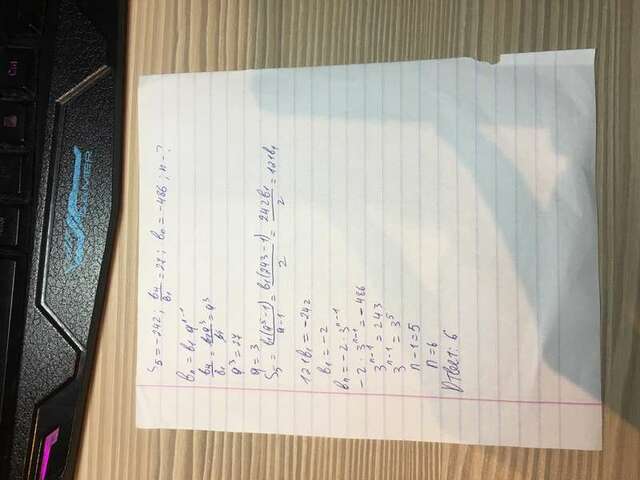 GAMER
Ctrl
S₅ = -242 ; b₄/b₁ = 27 ; bₙ = -486 ; n - ?
bₙ = b₁ · qⁿ⁻¹
b₄/b₁ = b₁q³/b₁ = q³
q³ = 27
q = 3
S₅ = b₁(q⁵-1)/q-1 = b₁(243-1)/2 = 242b₁/2 = 121b₁
121b₁ = -242
b₁ = -2
bₙ = -2 · 3ⁿ⁻¹
-2 · 3ⁿ⁻¹ = -486
3ⁿ⁻¹ = 243
3ⁿ⁻¹ = 3⁵
n-1 = 5
n = 6
Ответ: 6